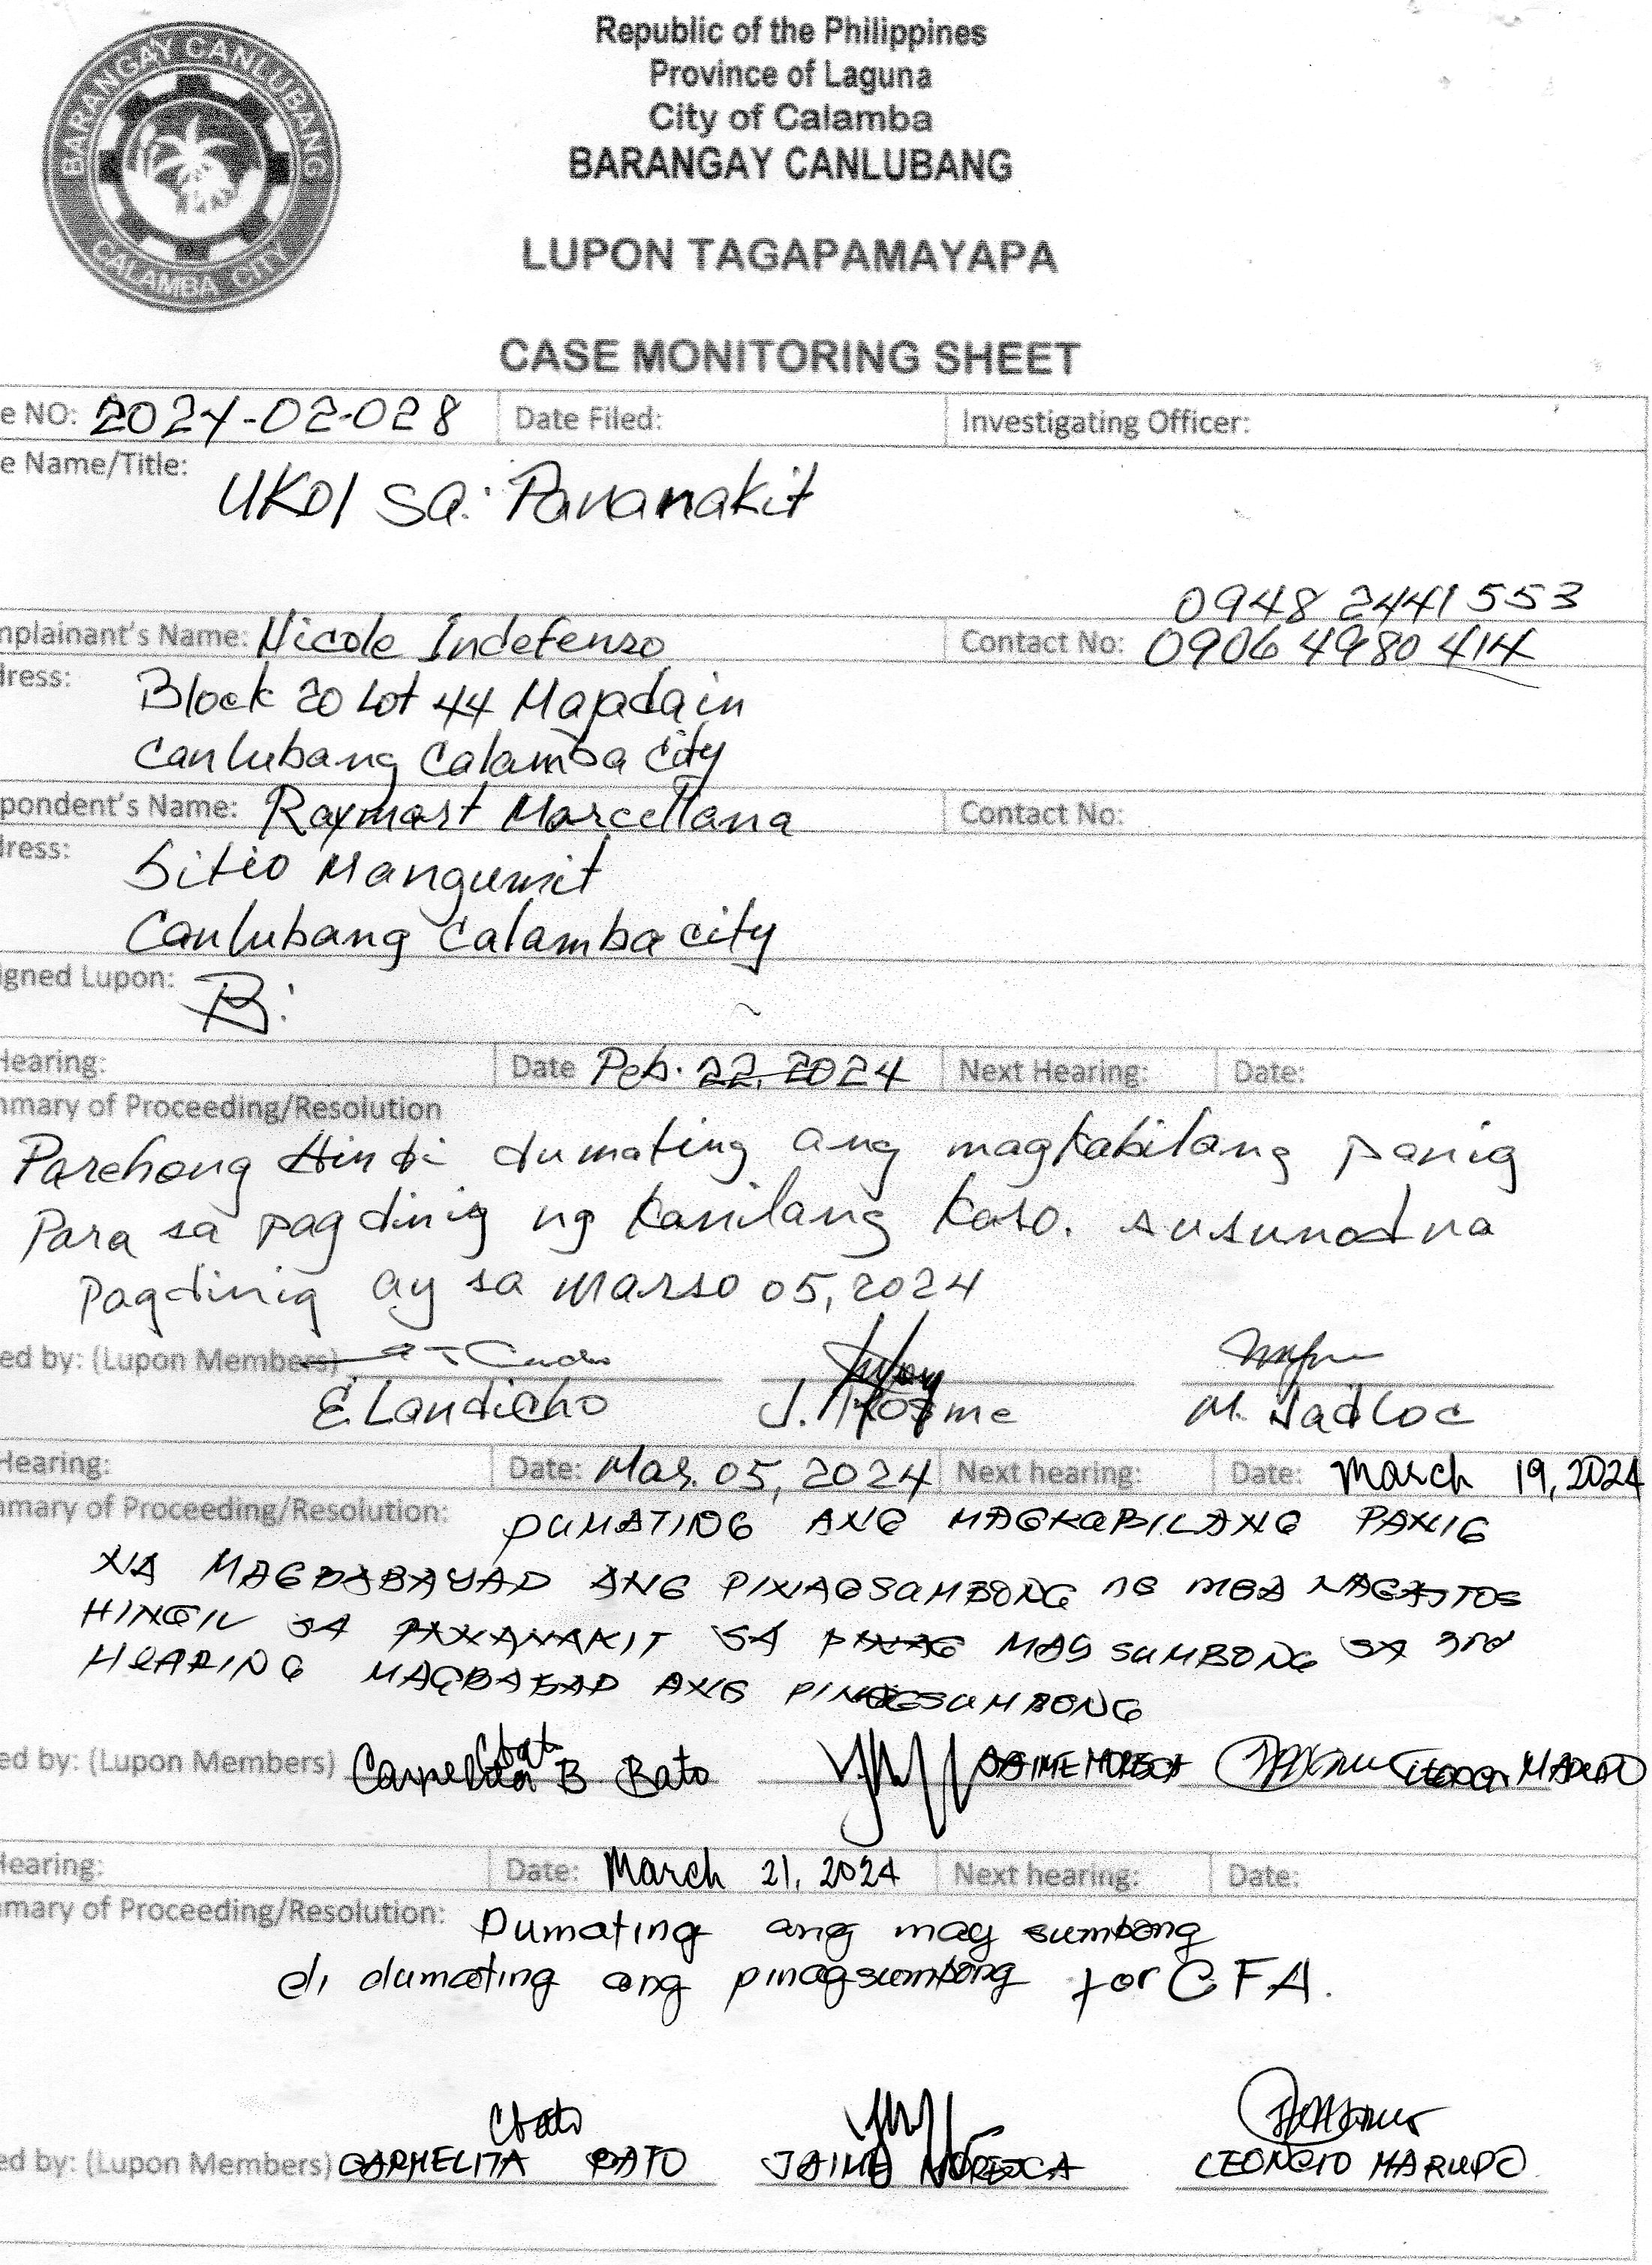 BARANGAY CANLUBANG
CALAMBA CITY
Republic of the Philippines
Province of Laguna
City of Calamba
BARANGAY CANLUBANG
LUPON TAGAPAMAYAPA
CASE MONITORING SHEET
e NO: 2024-02-028 Date Filed: Investigating Officer:
e Name/Title: UKOl sa: Pananakit
0948 2441 553
nplainant's Name: Nicole Indefenzo Contact No: 0906 4980 414
ress: Block 20 Lot 44 Majadain
Canlubang Calamba City
pondent's Name: Raymart Marcellana Contact No:
ress: Sitio Mangumit
Canlubang Calamba city
igned Lupon: B.
Hearing: Date Peb. 22, 2024 Next Hearing: Date:
mmary of Proceeding/Resolution
Parehong Hindi dumating ang magkabilang panig
Para sa pagdinig ng kanilang kaso. susunod na
pagdinig ay sa Marso 05, 2024
ed by: (Lupon Members)
E. Landicho J. M. Nadloc
Hearing: Date: Mar. 05, 2024 Next hearing: Date: March 19, 2024
mmary of Proceeding/Resolution: DUMATING ANG MAGKABILANG PANIG
NA MAGBABAYAD ANG PINAGSUMBONG NG MGA NAGASTOS
HINGIL SA PANANAKIT SA MAY SUMBONG SA 3rd
HEARING MAGBAYAD ANG PINAGSUMBONG
ed by: (Lupon Members) Carmelita B Bato JAIME MORESCA MARUDO
Hearing: Date: March 21, 2024 Next hearing: Date:
mmary of Proceeding/Resolution: Dumating ang may sumbong
di dumating ang pinagsumbong for CFA.
ed by: (Lupon Members) CARMELITA BATO JAIME MORESCA LEONCIO MARUDO